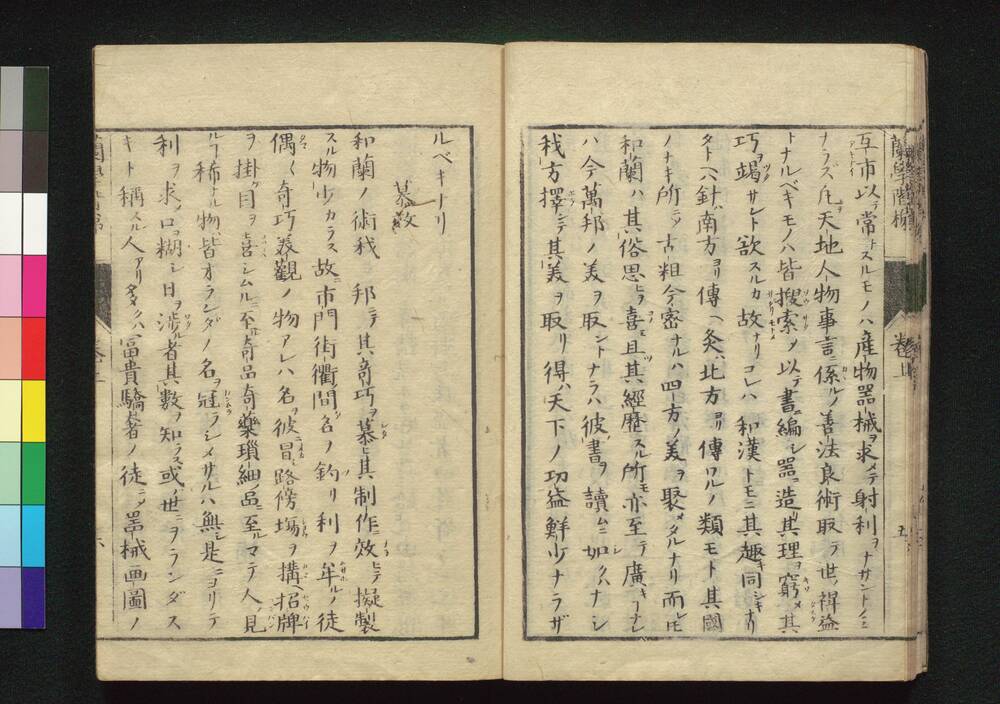 蘭學階梯
巻上
五
互市以テ常トスルモノハ産物器械ヲ求メテ射利ヲナサントノミ
ナラス凡天地人物事言ニ係ルノ善法良術取テ世ニ裨益
トナルベキモノハ皆搜索ヲ以テ書ニ編シ器ニ造リ其理ヲ窮メ其
巧ヲ竭サント欲スルカ故ナリコレハ和漢トモニ其趣キ同シキナリ
タトヘハ針ハ南方ヨリ傳ヘ灸ハ北方ヨリ傳ハルノ類モト其國
ノナキ所ニノ古粗今密ナルハ四方ノ美ヲ聚メタルナリ而レ𪜈
和蘭ハ其俗思ヒヲ喜ミ且其經歴スル所モ亦至テ廣キナレ
ハ今萬邦ノ美ヲ取ントナラハ彼書ヲ讀ムニ如クハナシ
我方擇ンテ其美ヲ取リ得ハ天下ノ功益鮮少ナラザ
ルベキナリ
慕效
和蘭ノ術我 邦ニテ其奇巧ヲ慕ヒ其制作效ヒテ擬製
スル物少カラス故ニ市門街衢ノ間名ノ釣リ利ヲ牟ルノ徒
偶〻奇巧美觀ノ物アレハ名ヲ彼ニ冒シ路傍ニ場ヲ搆ヘ招牌
ヲ掛ケ目ヲ喜シムルニ至ル奇品奇藥瑣細ノ品ニ至ルマテ人ノ見
ルヿ稀ナル物ハ皆オランダノ名ヲ冠ラシメサルハ無シ是ニヨリテ
利ヲ求メ口ヲ糊シ日ヲ渉ル者其數ヲ知ラス或ハ世ニヲランダス
キト稱スル人アリ多クハ富貴驕奢ノ徒ニシテ器械画圖ノ